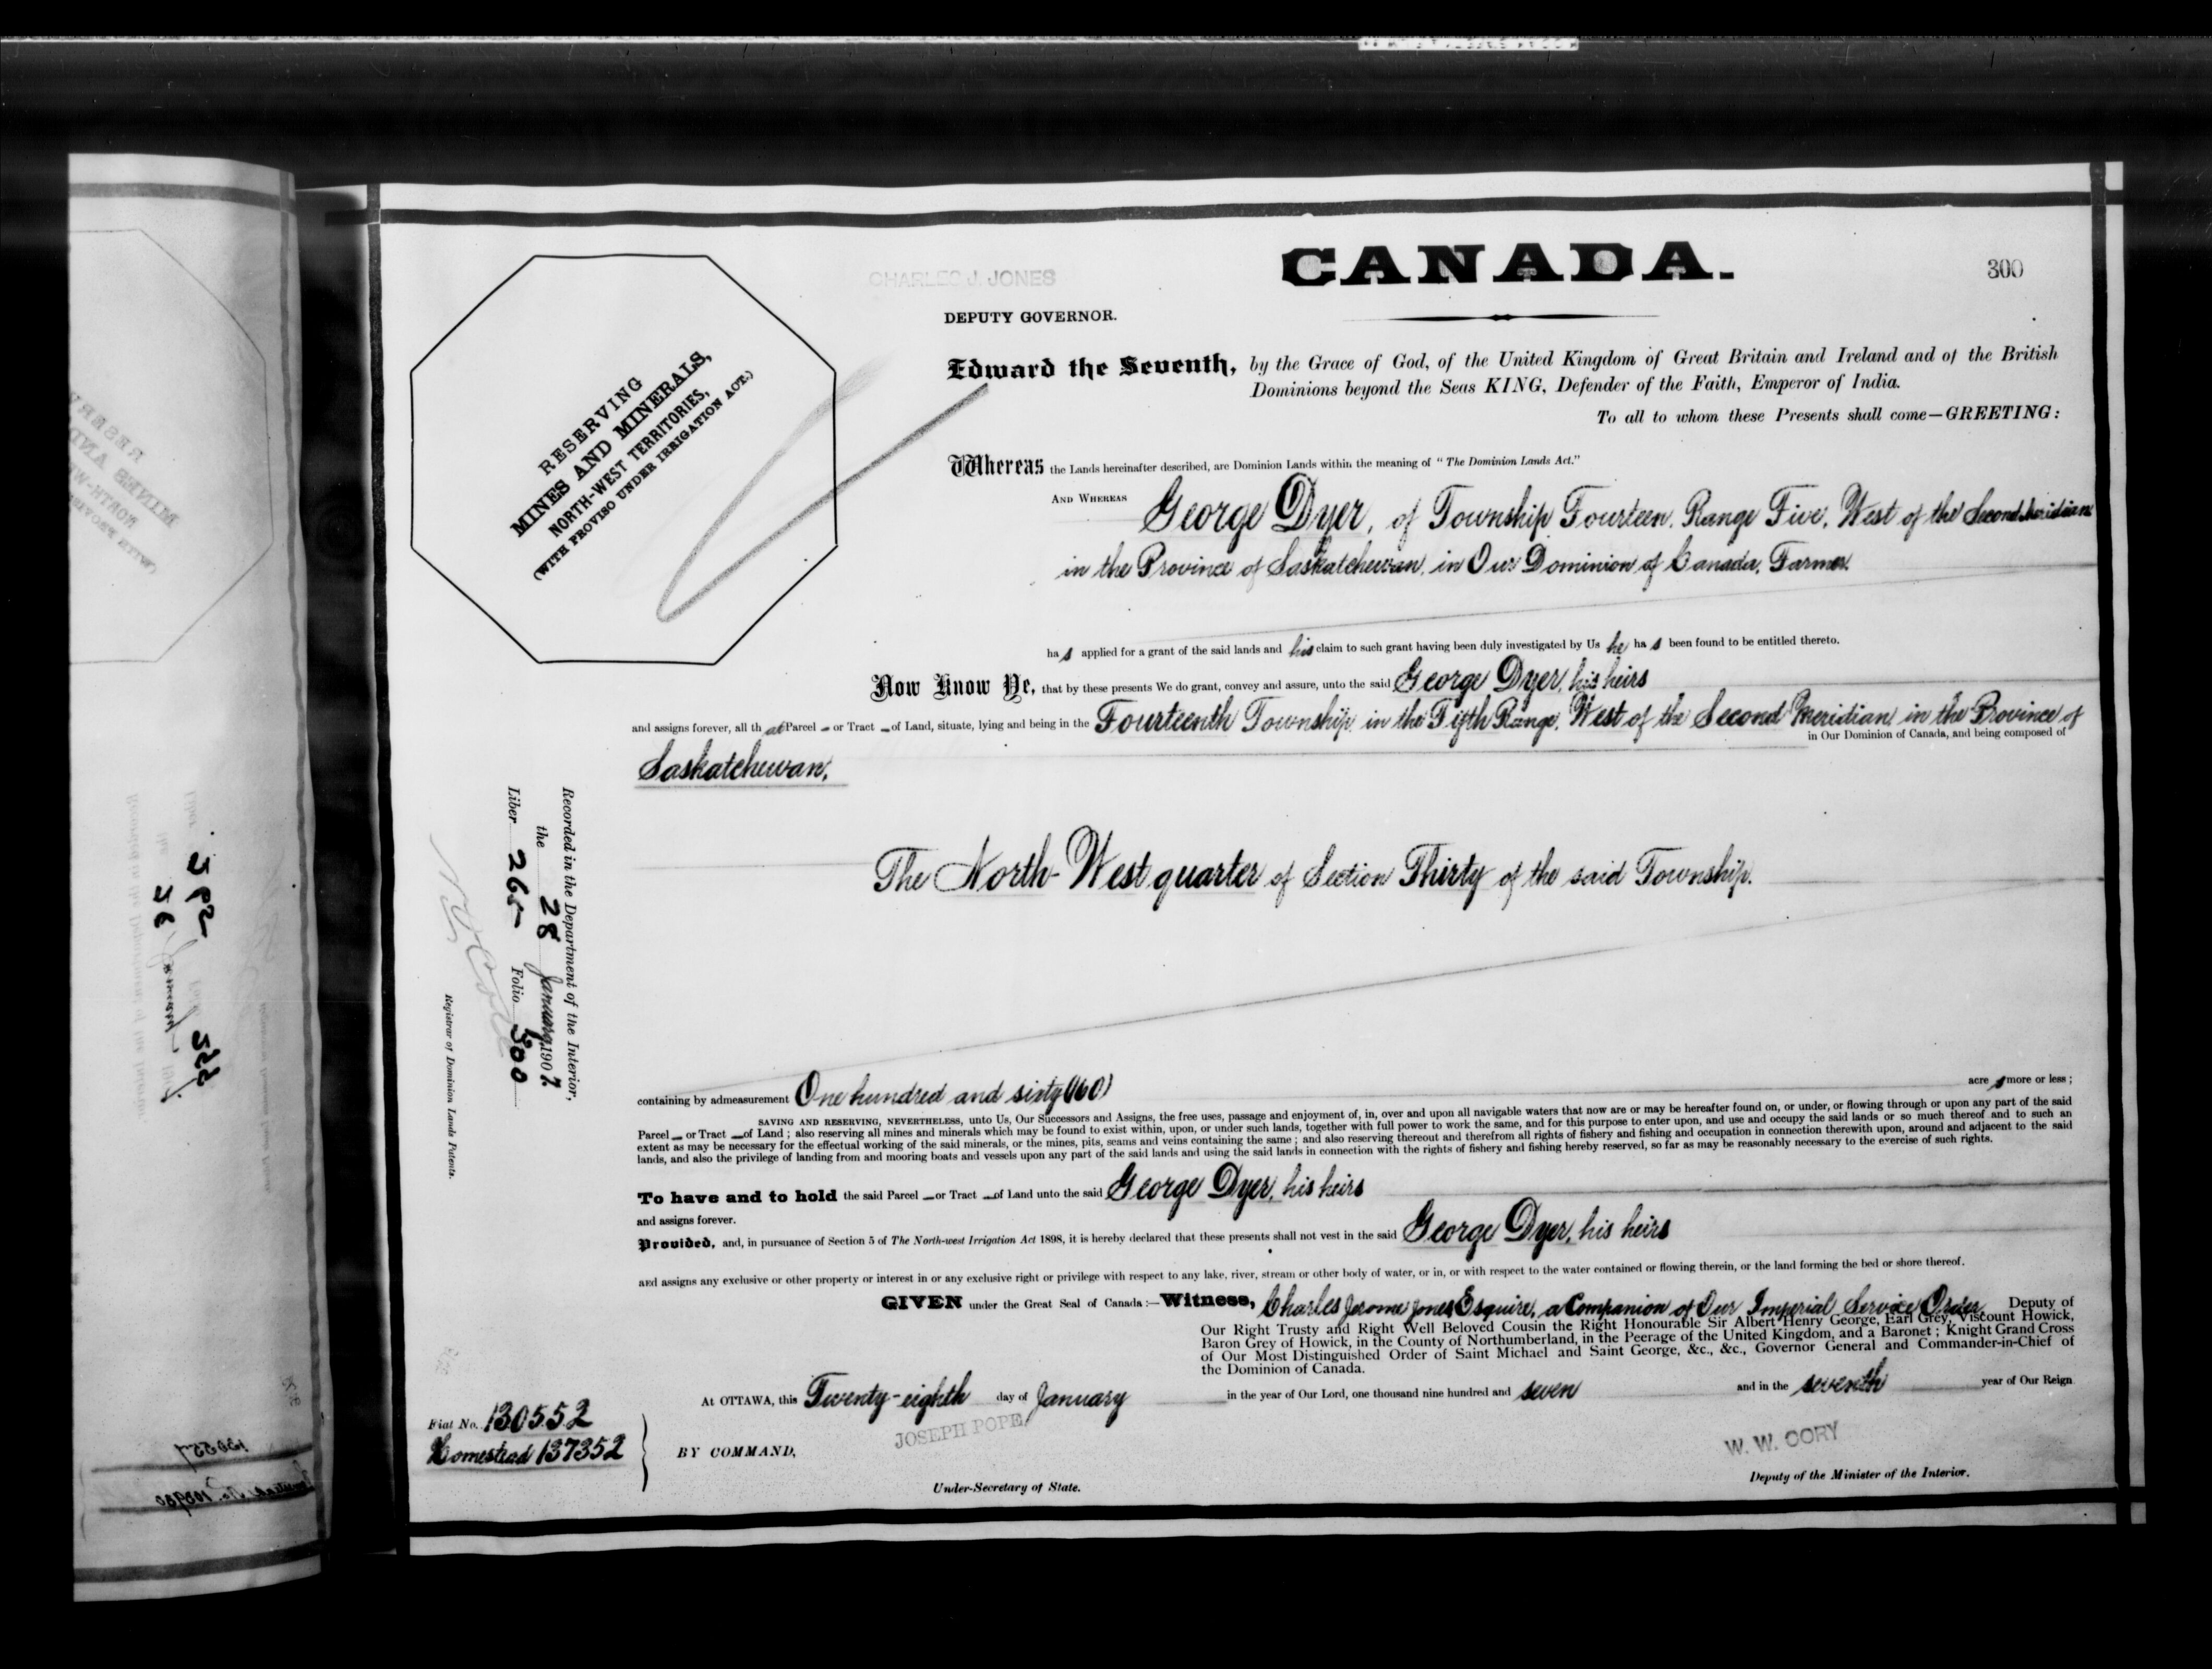 CANADA.
300
CHARLES J. JONES
DEPUTY GOVERNOR.
RESERVING
MINES AND MINERALS,
NORTH-WEST TERRITORIES,
(WITH PROVISO UNDER IRRIGATION ACT.)
Edward the Seventh, by the Grace of God, of the United Kingdom of Great Britain and Ireland and of the British
Dominions beyond the Seas KING, Defender of the Faith, Emperor of India.
To all to whom these Presents shall come—GREETING:
Whereas the Lands hereinafter described, are Dominion Lands within the meaning of "The Dominion Lands Act."
AND WHEREAS George Dyer, of Township Fourteen, Range Five, West of the Second Meridian
in the Province of Saskatchewan, in Our Dominion of Canada, Farmer.
has applied for a grant of the said lands and his claim to such grant having been duly investigated by Us he has been found to be entitled thereto.
Now Know Ye, that by these presents We do grant, convey and assure, unto the said George Dyer, his heirs
and assigns forever, all that Parcel - or Tract - of Land, situate, lying and being in the Fourteenth Township in the Fifth Range, West of the Second Meridian in the Province of
in Our Dominion of Canada, and being composed of
Saskatchewan,
The North-West quarter of Section Thirty of the said Township.
Recorded in the Department of the Interior,
the 28 January, 1907.
Liber 265 Folio 300
Registrar of Dominion Lands Patents.
containing by admeasurement One hundred and sixty (160) acres more or less;
SAVING AND RESERVING, NEVERTHELESS, unto Us, Our Successors and Assigns, the free uses, passage and enjoyment of, in, over and upon all navigable waters that now are or may be hereafter found on, or under, or flowing through or upon any part of the said
Parcel - or Tract - of Land; also reserving all mines and minerals which may be found to exist within, upon, or under such lands, together with full power to work the same, and for this purpose to enter upon, and use and occupy the said lands or so much thereof and to such an
extent as may be necessary for the effectual working of the said minerals, or the mines, pits, seams and veins containing the same; and also reserving thereout and therefrom all rights of fishery and fishing and occupation in connection therewith upon, around and adjacent to the said
lands, and also the privilege of landing from and mooring boats and vessels upon any part of the said lands and using the said lands in connection with the rights of fishery and fishing hereby reserved, so far as may be reasonably necessary to the exercise of such rights.
To have and to hold the said Parcel - or Tract - of Land unto the said George Dyer, his heirs
and assigns forever.
Provided, and, in pursuance of Section 5 of The North-west Irrigation Act 1898, it is hereby declared that these presents shall not vest in the said George Dyer, his heirs
and assigns any exclusive or other property or interest in or any exclusive right or privilege with respect to any lake, river, stream or other body of water, or in, or with respect to the water contained or flowing therein, or the land forming the bed or shore thereof.
GIVEN under the Great Seal of Canada:—Witness, Charles Jerome Jones Esquire, a Companion of Our Imperial Service Order, Deputy of
Our Right Trusty and Right Well Beloved Cousin the Right Honourable Sir Albert Henry George, Earl Grey, Viscount Howick,
Baron Grey of Howick, in the County of Northumberland, in the Peerage of the United Kingdom, and a Baronet; Knight Grand Cross
of Our Most Distinguished Order of Saint Michael and Saint George, &c., &c., Governor General and Commander-in-Chief of
the Dominion of Canada.
At OTTAWA, this Twenty-eighth day of January in the year of Our Lord, one thousand nine hundred and seven and in the seventh year of Our Reign
Fiat No. 130552
Homestead 137352
BY COMMAND,
JOSEPH POPE,
Under-Secretary of State.
W. W. CORY
Deputy of the Minister of the Interior.